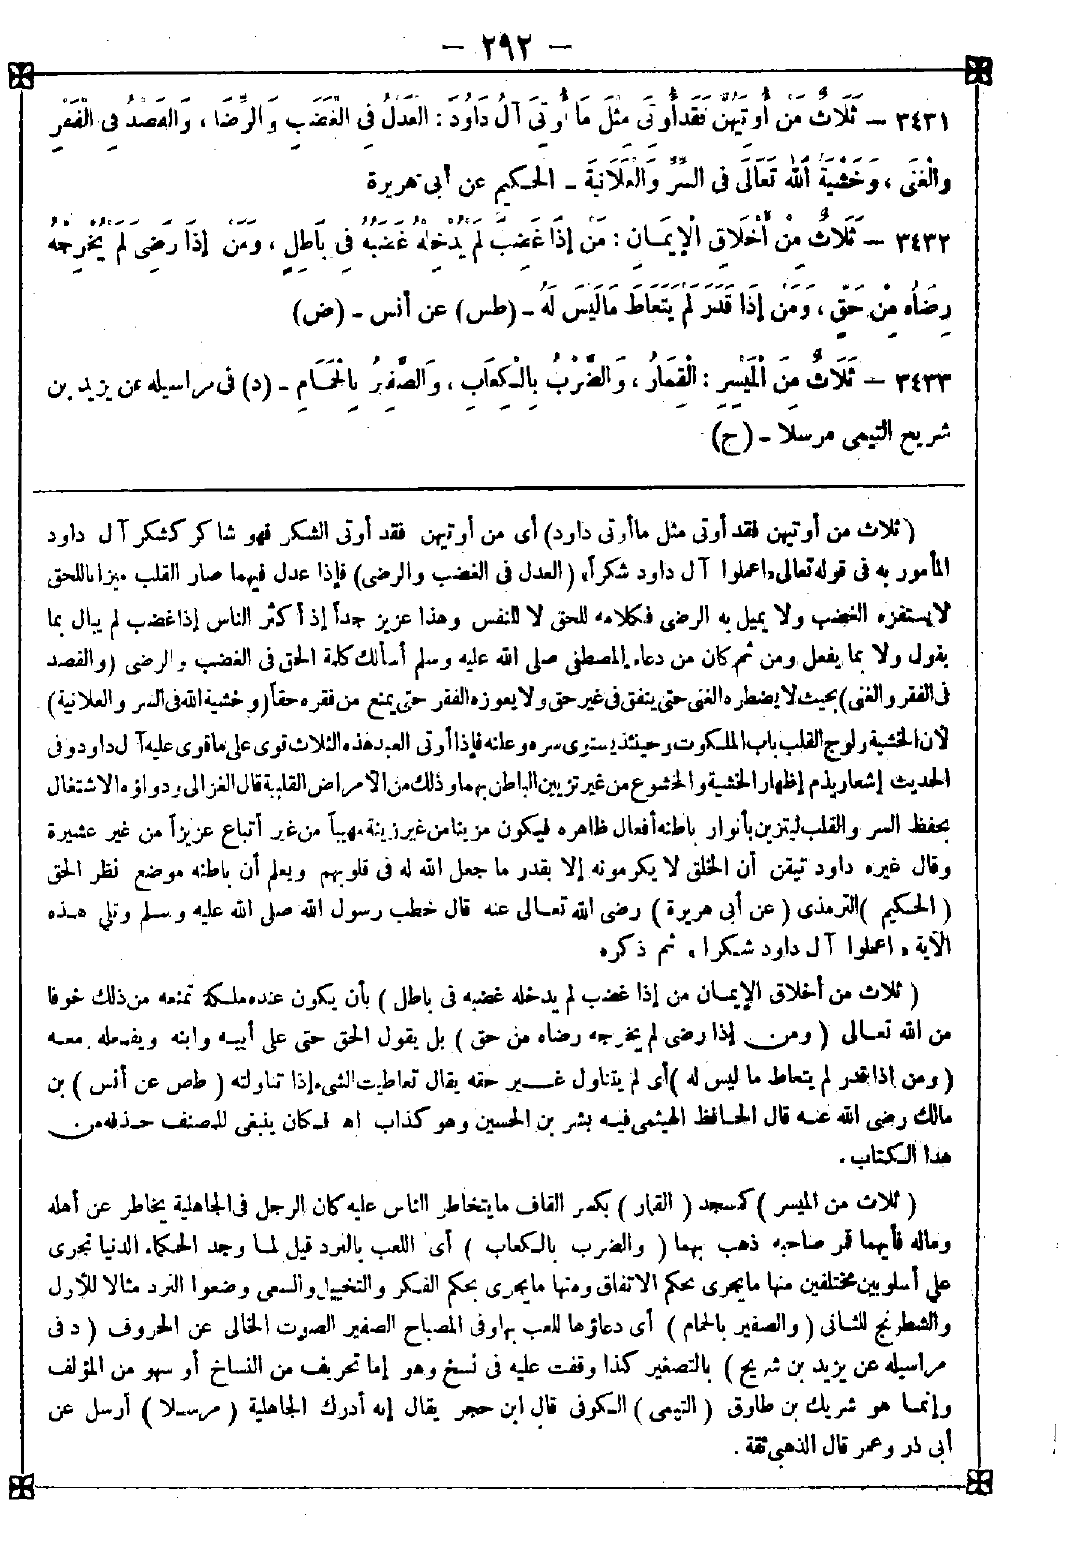 — ٢٩٢ —
٣٤٣١ – ثَلَاثٌ مَنْ أُوتِيَهُنَّ فَقَدْ أُوتِيَ مِثْلَ مَا أُوتِيَ آلُ دَاوُدَ : الْعَدْلُ فِي الْغَضَبِ وَالرِّضَا ، وَالْقَصْدُ فِي الْفَقْرِ
وَالْغِنَى ، وَخَشْيَةُ اللهِ تَعَالَى فِي السِّرِّ وَالْعَلَانِيَةِ – الحكيم عن أبي هريرة
٣٤٣٢ – ثَلَاثٌ مِنْ أَخْلَاقِ الْإِيمَانِ : مَنْ إِذَا غَضِبَ لَمْ يُدْخِلْهُ غَضَبُهُ فِي بَاطِلٍ ، وَمَنْ إِذَا رَضِيَ لَمْ يُخْرِجْهُ
رِضَاهُ مِنْ حَقٍّ ، وَمَنْ إِذَا قَدَرَ لَمْ يَتَعَاطَ مَالَيْسَ لَهُ – (طس) عن أنس – (ض)
٣٤٣٣ – ثَلَاثٌ مِنَ الْمَيْسِرِ : الْقِمَارُ ، وَالضَّرْبُ بِالْكِعَابِ ، وَالصَّفِيرُ بِالْحَمَامِ – (د) في مراسيله عن يزيد بن
شريح التيمي مرسلا – (ح)
( ثلاث من أوتيهن فقد أوتى مثل ماأوتى داود) أى من أوتيهن فقد أوتى الشكر فهو شاكر كشكر آل داود
المأمور به فى قوله تعالى «اعملوا آل داود شكراً» (العدل فى الغضب والرضى) فإذا عدل فيهما صار القلب ميزانا للحق
لا يستفزه الغضب ولا يميل به الرضى فكلامه للحق لا للنفس وهذا عزيز جداً إذ أكثر الناس إذا غضب لم يبال بما
يقول ولا بما يفعل ومن ثم كان من دعاء المصطفى صلى الله عليه وسلم أسألك كلمة الحق فى الغضب والرضى (والقصد
فى الفقر والغنى) بحيث لا يضطره الغنى حتى ينفق فى غير حق ولا يعوزه الفقر حتى يمنع من فقره حقاً (وخشية الله فى السر والعلانية)
لأن الخشية ولوج القلب باب الملكوت وحينئذ يستوى سره وعلنه فإذا أوتى العبد هذه الثلاث قوى على ما قوى عليه آل داود وفى
الحديث إشعار بذم إظهار الخشية والخشوع من غير تزيين الباطن بهما وذلك من الأمراض القلبية قال الغزالى ودواؤه الاشتغال
بحفظ السر والقلب ليتزين بأنوار باطنه أفعال ظاهره فيكون مزينا من غير زينة مهيباً من غير أتباع عزيزاً من غير عشيرة
وقال غيره داود تيقن أن الخلق لا يكرمونه إلا بقدر ما جعل الله له فى قلوبهم ويعلم أن باطنه موضع نظر الحق
( الحكيم )الترمذى ( عن أبى هريرة ) رضى الله تعالى عنه قال خطب رسول الله صلى الله عليه وسلم وتلى هذه
الآية « اعملوا آل داود شكرا » ثم ذكره
( ثلاث من أخلاق الإيمان من إذا غضب لم يدخله غضبه فى باطل ) بأن يكون عنده ملكة تمنعه من ذلك خوفا
من الله تعالى ( ومن إذا رضى لم يخرجه رضاه من حق ) بل يقول الحق حتى على أبيه وابنه ويفعله معه
( ومن إذا قدر لم يتعاط ما ليس له )أى لم يتناول غير حقه يقال تعاطيت الشىء إذا تناولته ( طص عن أنس ) بن
مالك رضى الله عنه قال الحافظ الهيثمى فيه بشر بن الحسين وهو كذاب اه فكان ينبغى للمصنف حذفه من
هذا الكتاب .
( ثلاث من الميسر ) كمسجد ( القمار ) بكسر القاف ما يتخاطر الناس عليه كان الرجل فى الجاهلية يخاطر عن أهله
وماله فأيهما قمر صاحبه ذهب بهما ( والضرب بالكعاب ) أى اللعب بالنرد قيل لما وجد الحكماء الدنيا تجرى
على أسلوبين مختلفين منها ما يجرى بحكم الاتفاق ومنها ما يجرى بحكم الفكر والتخييل والسعى وضعوا النرد مثالا للأول
والشطرنج للثانى ( والصفير بالحمام ) أى دعاؤها للعب بها وفى المصباح الصفير الصوت الخالى عن الحروف ( د فى
مراسيله عن يزيد بن شريح ) بالتصغير كذا وقفت عليه فى نسخ وهو إما تحريف من النساخ أو سهو من المؤلف
وإنما هو شريك بن طارق ( التيمى ) الكوفى قال ابن حجر يقال إنه أدرك الجاهلية ( مرسلا ) أرسل عن
أبى ذر وعمر قال الذهبى ثقة .